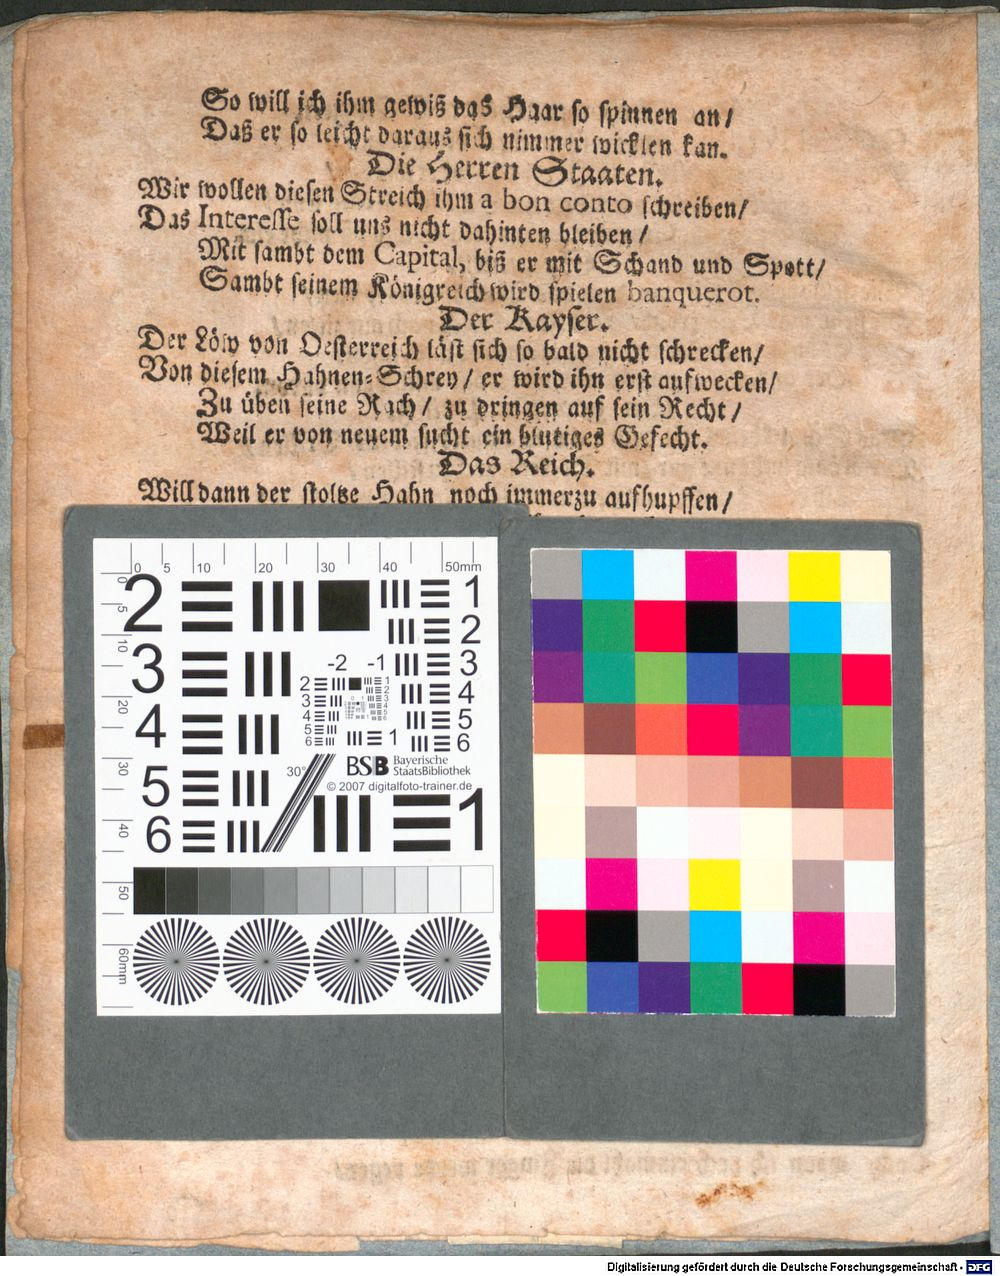 So will ich ihm gewiß das Haar so spinnen an/
Daß er so leicht daraus sich nimmer wicklen kan.
Die Herren Staaten.
Wir wollen diesen Streich ihm a bon conto schreiben/
Das Interesse soll uns nicht dahinten bleiben/
Mit sambt dem Capital, biß er mit Schand und Spott/
Sambt seinem Königreich wird spielen banquerot.
Der Kayser.
Der Löw von Oesterreich läst sich so bald nicht schrecken/
Von diesem Hahnen-Schrey/ er wird ihn erst aufwecken/
Zu üben seine Rach/ zu dringen auf sein Recht/
Weil er von neuem sucht ein blutiges Gefecht.
Das Reich.
Will dann der stoltze Hahn noch immerzu aufhupffen/
0 5 10 20 30 40 50mm
0 5 10 20 30 40 50 60mm
2 3 4 5 6
1 2 3 4 5 6
-2 -1
2 3 4 5 6
1
30°
BSB Bayerische
StaatsBibliothek
© 2007 digitalfoto-trainer.de
1
Digitalisierung gefördert durch die Deutsche Forschungsgemeinschaft - DFG